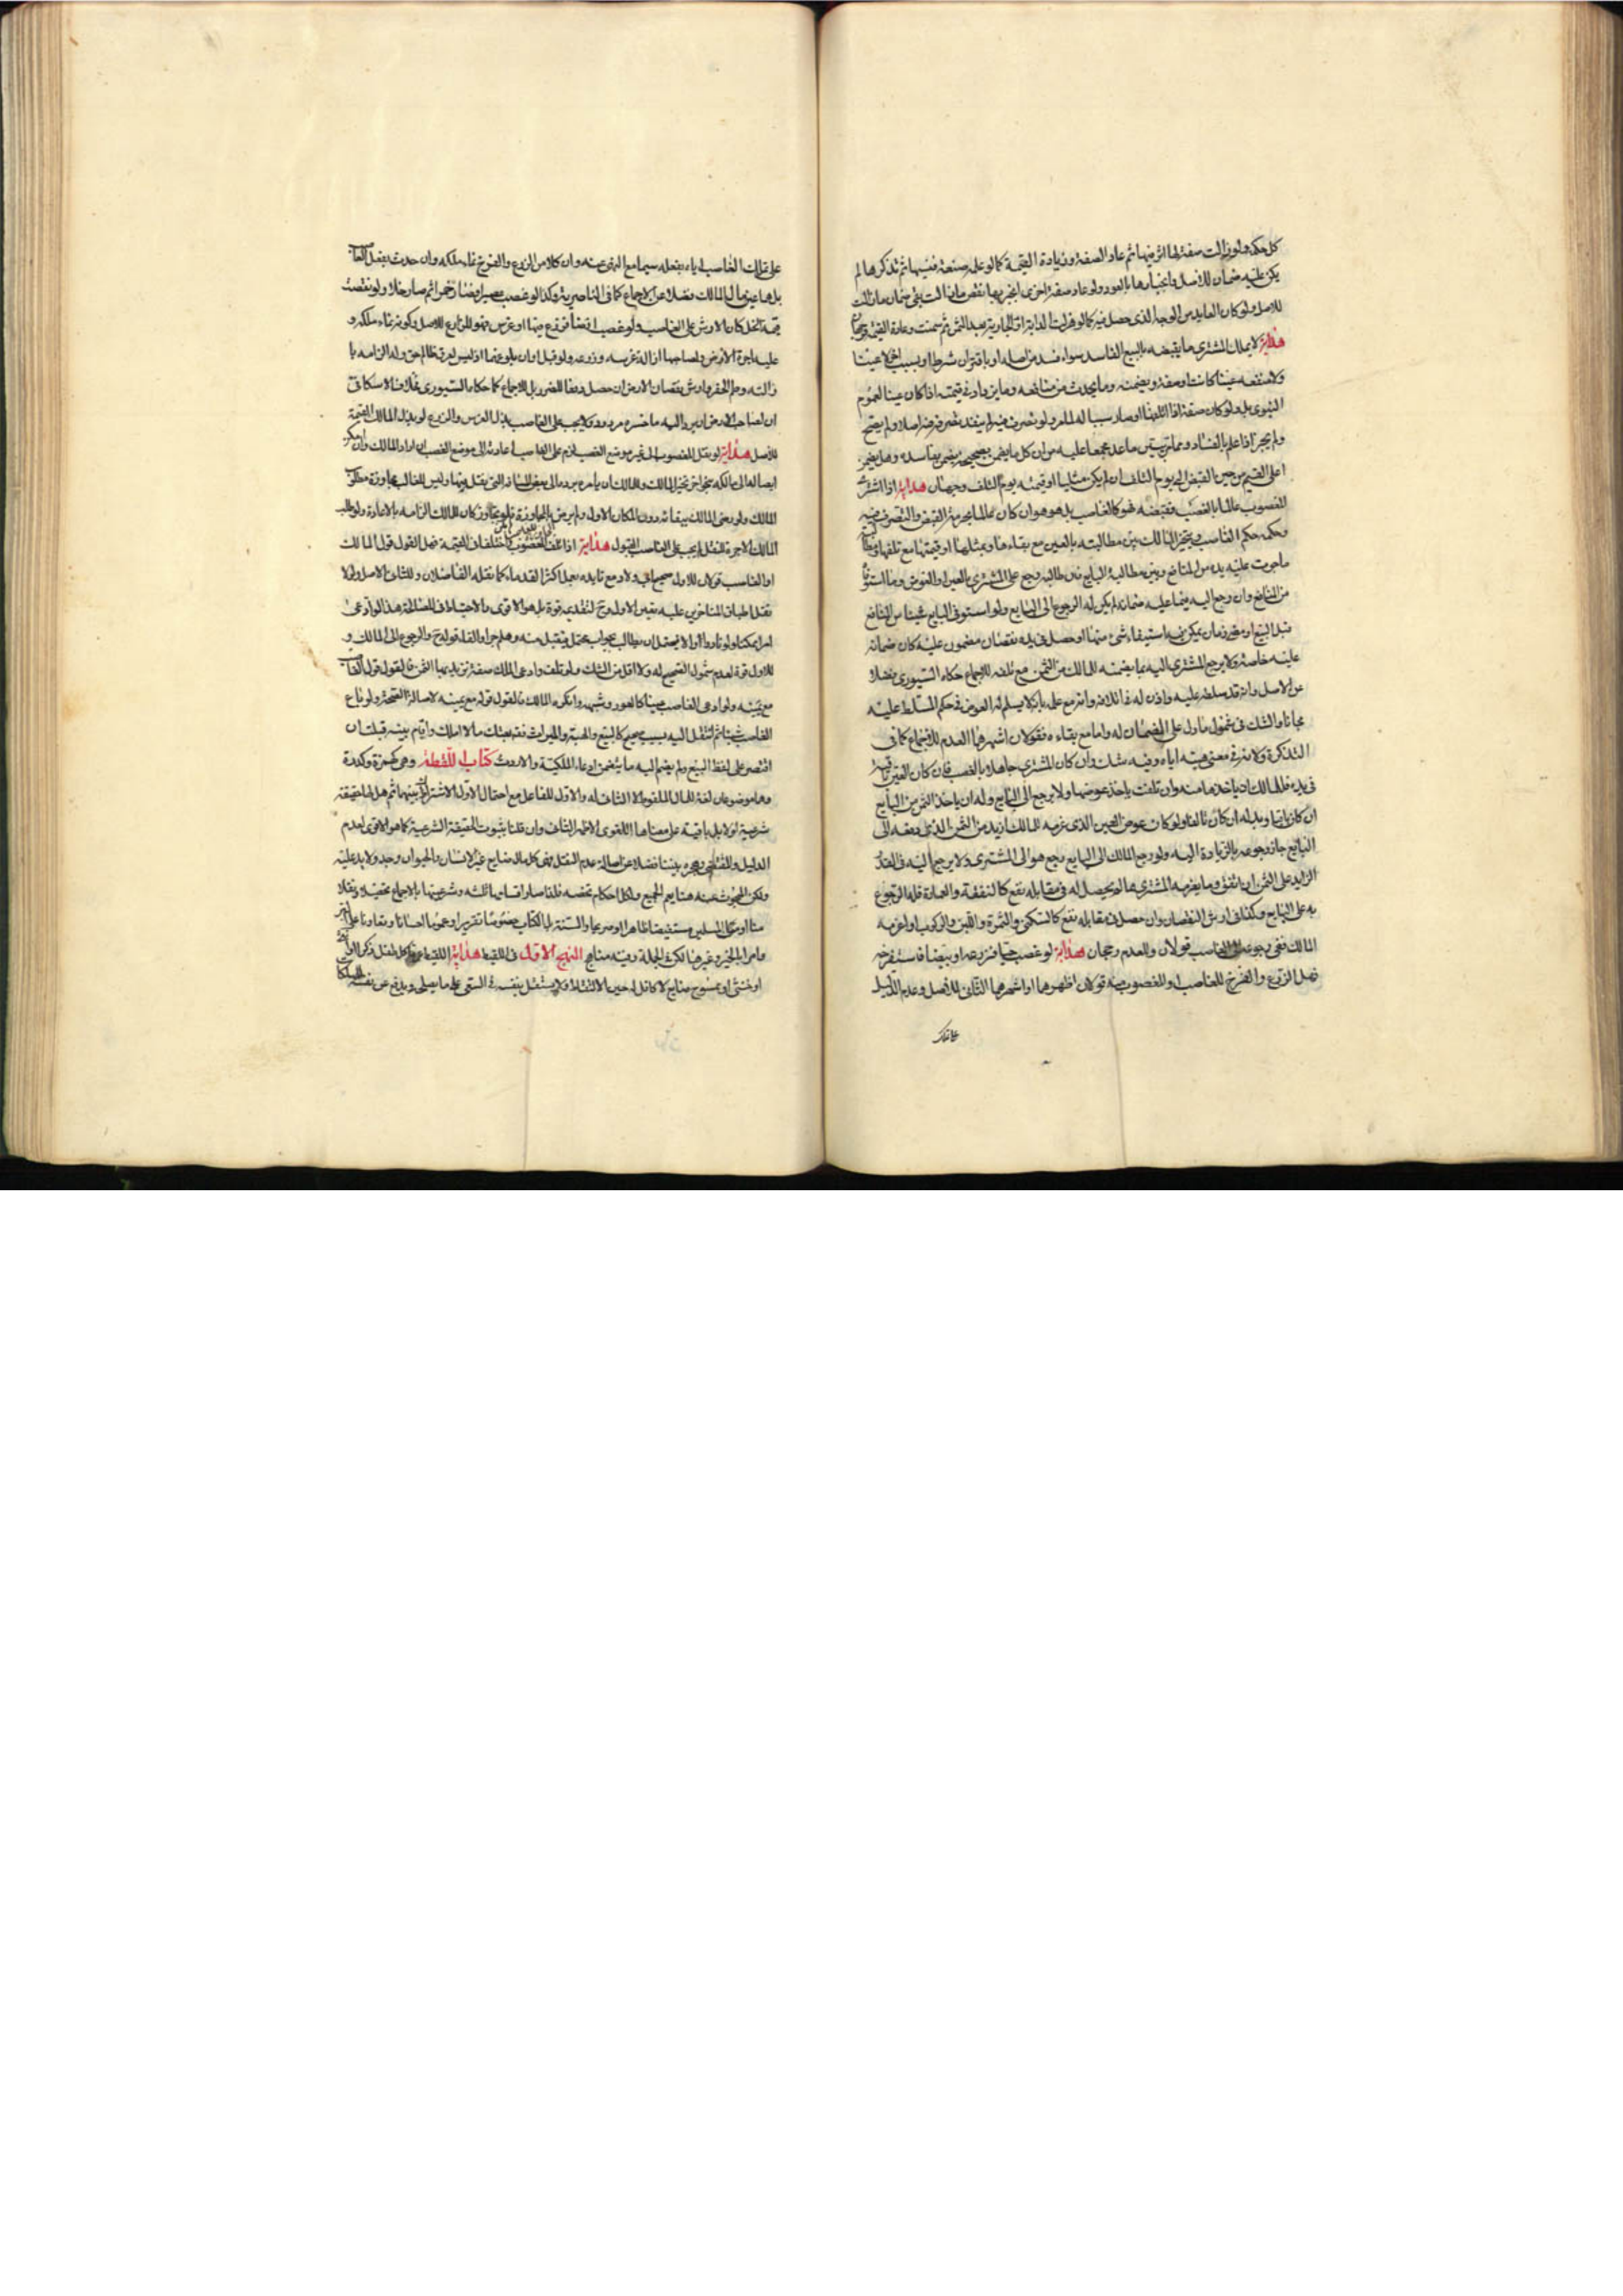 كل حكمه ولو زالت صفة لها اثر فيها ثم عاد الصفة وزيادة القيمة كما لو علمه صنعة فنسيها ثم تذكرها لم
يكن عليه ضمان للاصل وانجبارها بالعود ولو عاد صفة اخرى لم ينجبر بها نقص ما زالت
للاصل ولو كان العايد من الوجه الذى حصل فيه كما لو هزلت الدابة او الجارية بعد السمن ثم سمنت وعادة القيمة
هداية لا يملك المشترى ما يقبضه بالبيع الفاسد سواء فسد من اصله او باقتران شرط او بسبب اخر لا عينا
ولا منفعه عينا كانت او صفة ويضمنه وما يحدث من منافعه وما يزداد فى قيمته اذا كان عينا لعموم
النبوى بل ولو كان صفة اذا اتلفها او صار سببا له ولو تصرف فيه لم ينفد تصرفه فيه اصلا ولم يصح
ولم يجز اذا علم بالفساد ومما مر تبين ما عد مجمعا عليه من ان كل ما يضمن بصحيحه يضمن بفاسده وهل يضمن
اعلى القيم من حين القبض الى يوم التلف ان لم يكن مثليا او قيمته يوم التلف وجهان هداية اذا اشترى
المغصوب عالما بالغصب فقبضه فهو كالغاصب بل هو هو وان كان عالما يحرم القبض والتصرف فيه
وحكمه حكم الغاصب فيتخير المالك بين مطالبته بالعين مع بقاءها وبمثلها او قيمتها مع تلفها
ما جرت عليه يده من المنافع وبين مطالبة البايع فان طالبه رجع على المشترى بالعين او العوض وما استوفا
من المنافع وان رجع اليه فيما عليه ضمانه لم يكن له الرجوع الى البايع ولو استوفى البايع شيئا من المنافع
قبل البيع او مضى زمان يمكن فيه استيفاء شئ منها او حصل فى يده نقصان مضمون عليه كان ضمانه
عليه خاصة ولا يرجع المشترى اليه بما يضمنه للمالك من الثمن مع تلفه للاجماع حكاه السيورى فضلا
عن الاصل وانه قد سلطه عليه واذن له فى اتلافه وانه مع علمه بانه لا يسلم له العوض فى حكم المسلط عليه
مجانا والشك فى شمول ما دل على الضمان له واما مع بقاءه فقولان اشهرهما العدم للاجماع كما فى
التذكرة ولانه فى معنى هبته اياه وفيه شك وان كان المشترى جاهلا بالغصب فان كان العين باقيه
فى يده فللمالك ان ياخذها منه وان تلفت ياخذ عوضها ولا يرجع الى البايع وله ان ياخذ الثمن من البايع
ان كان باقيا وبدله ان كان تالفا ولو كان عوض العين الذى غرمه للمالك ازيد من الثمن الذى دفعه الى
البايع جاز رجوعه بالزيادة اليه ولو رجع المالك الى البايع رجع هو الى المشترى ولا يرجع اليه فى القدر
الزايد على الثمن ان اتفق وما يغرمه المشترى مما لم يحصل له فى مقابله نفع كالنفقة والعمارة فله الرجوع
به على البايع وكذا فى ارش النقصان وان حصل فى مقابله نفع كالسكنى والثمرة واللبن والركوب او اغرمه
المالك ففى رجوعه الى الغاصب قولان والعدم رجحان هداية لو غصب حبا فزرعه او بيضا فاستفرخه
فهل الزرع والفرخ للغاصب او للمغصوب منه قولان اظهرهما واشهرهما الثانى للاصل وعدم الدليل
على تملك الغاصب اياه بفعله سيما مع النهى عنه وان كلا من الزرع والفرخ نماء ملكه وان حدث بفعل الغاصب
بل هما عين مال المالك فضلا عن الاجماع كما فى الناصرية وكذا لو غصب عصيرا فصار خمرا ثم صار خلا ولو نقصت
قيمة الخل كان الارش على الغاصب ولو غصب ارضا فزرع فيها او غرس فهو للزارع للاصل وكونه نماء ملكه و
عليه اجرة الارض ولصاحبها ازالة غرسه وزرعه ولو قبل اوان بلوغهما اذ ليس لعرق ظالم حق وله الزامه با
زالته وطم الحفر وارش نقصان الارض ان حصل دفعا للضرر بل للاجماع كما حكاه السيورى خلافا للاسكافى
ان لصاحب الارض ان يرد اليه ما خسره مردود ولا يجب على الغاصب بذل الغرس والزرع لو بذل المالك القيمة
للاصل هداية لو نقل المغصوب الى غير موضع الغصب لزم على الغاصب اعادته الى موضع الغصب ان اراد المالك وان
ايصاله الى مالكه بنحو اخر تخير المالك والمالك ان يامره برده الى بعض المسافة التى نقل فيها وليس للغاصب مجاوزة مطلوب
المالك ولو رضى المالك ببقائه دون المكان الاول ولم يرض بالمجاوزة فلو تجاوز كان للمالك الزامه بالاعادة ولو طلب
المالك الاجرة للنقل لم يجب على الغاصب القبول هداية اذا تلف المغصوب واختلفا فى القيمة فهل القول قول المالك
او الغاصب قولان للاول صحيح ابى ولاد مع تايده بعمل اكثر القدماء كما نقله الفاضلان وللثانى الاصل ولولا
نقل اطباق المتاخرين عليه تعين الاول وح لتقديمه قوة بل هو الاقوى والاحتياط فى المصالحة هذا لو ادعى
امرا ممكنا ولو نادرا او لا يحتمل ان يطالب بجواب محتمل فيقبل منه وهلم جرا والقلة قوله ح والرجوع الى المالك و
للاول قوة لعدم شمول الصحيح له ولا اقل من الشك ولو تلف وادعى المالك صفة تزيد بها الثمن فالقول قول الغاصب
مع يمينه ولو ادعى الغاصب عيبا كالعور وشبهه وانكره المالك فالقول قوله مع يمينه لاصالة الصحة ولو باع
الغاصب شيئا ثم انتقل اليه بسبب صحيح كالبيع والهبة والميراث فقال بعتك ما لا املك واقام بينة قبلت ان
اقتصر على لفظ البيع ولم يضم اليه ما يتضمن ادعاء الملكية والا ردت كتاب اللقطة وهى كهمزة وكدرة
وهما موضوعان لغة للمال الملقوط او الثانى له والاول للفاعل مع احتمال الاول الاشتراك بينهما ثم هل لها حقيقة
شرعية او لا بل باقية على معناها اللغوى الاظهر الثانى وان قلنا بثبوت الحقيقة الشرعية كما هو الاقوى لعدم
الدليل والمقتضى وهجره بيننا فضلا عن اصالة عدم النقل ففى كل مال ضايع غير الانسان والحيوان وجد ولا يد عليه
ولكن المبحوث عنه هنا يعم الجميع ولكل احكام تخصه فلذا صار اقسامها ثلثه وشرعيتها بالاجماع تحصيلا ونقلا
منا او من المسلمين مستفيضا ظاهرا او صريحا والسنة بل الكتاب خصوصا تقريرا وعموما احسانا وتعاونا على البر
وامرا بالخير وغيرهما لكن فى الجملة وفيه مناهج المنهج الاول فى اللقيط هداية اللقيط عرفا كل طفل ذكرا او
او خنثى او ممسوح ضايع لا كافل له حين الالتقاط ولا يستقل بنفسه فى السعى على ما يصلحه ويدفع عن نفسه
على تملك